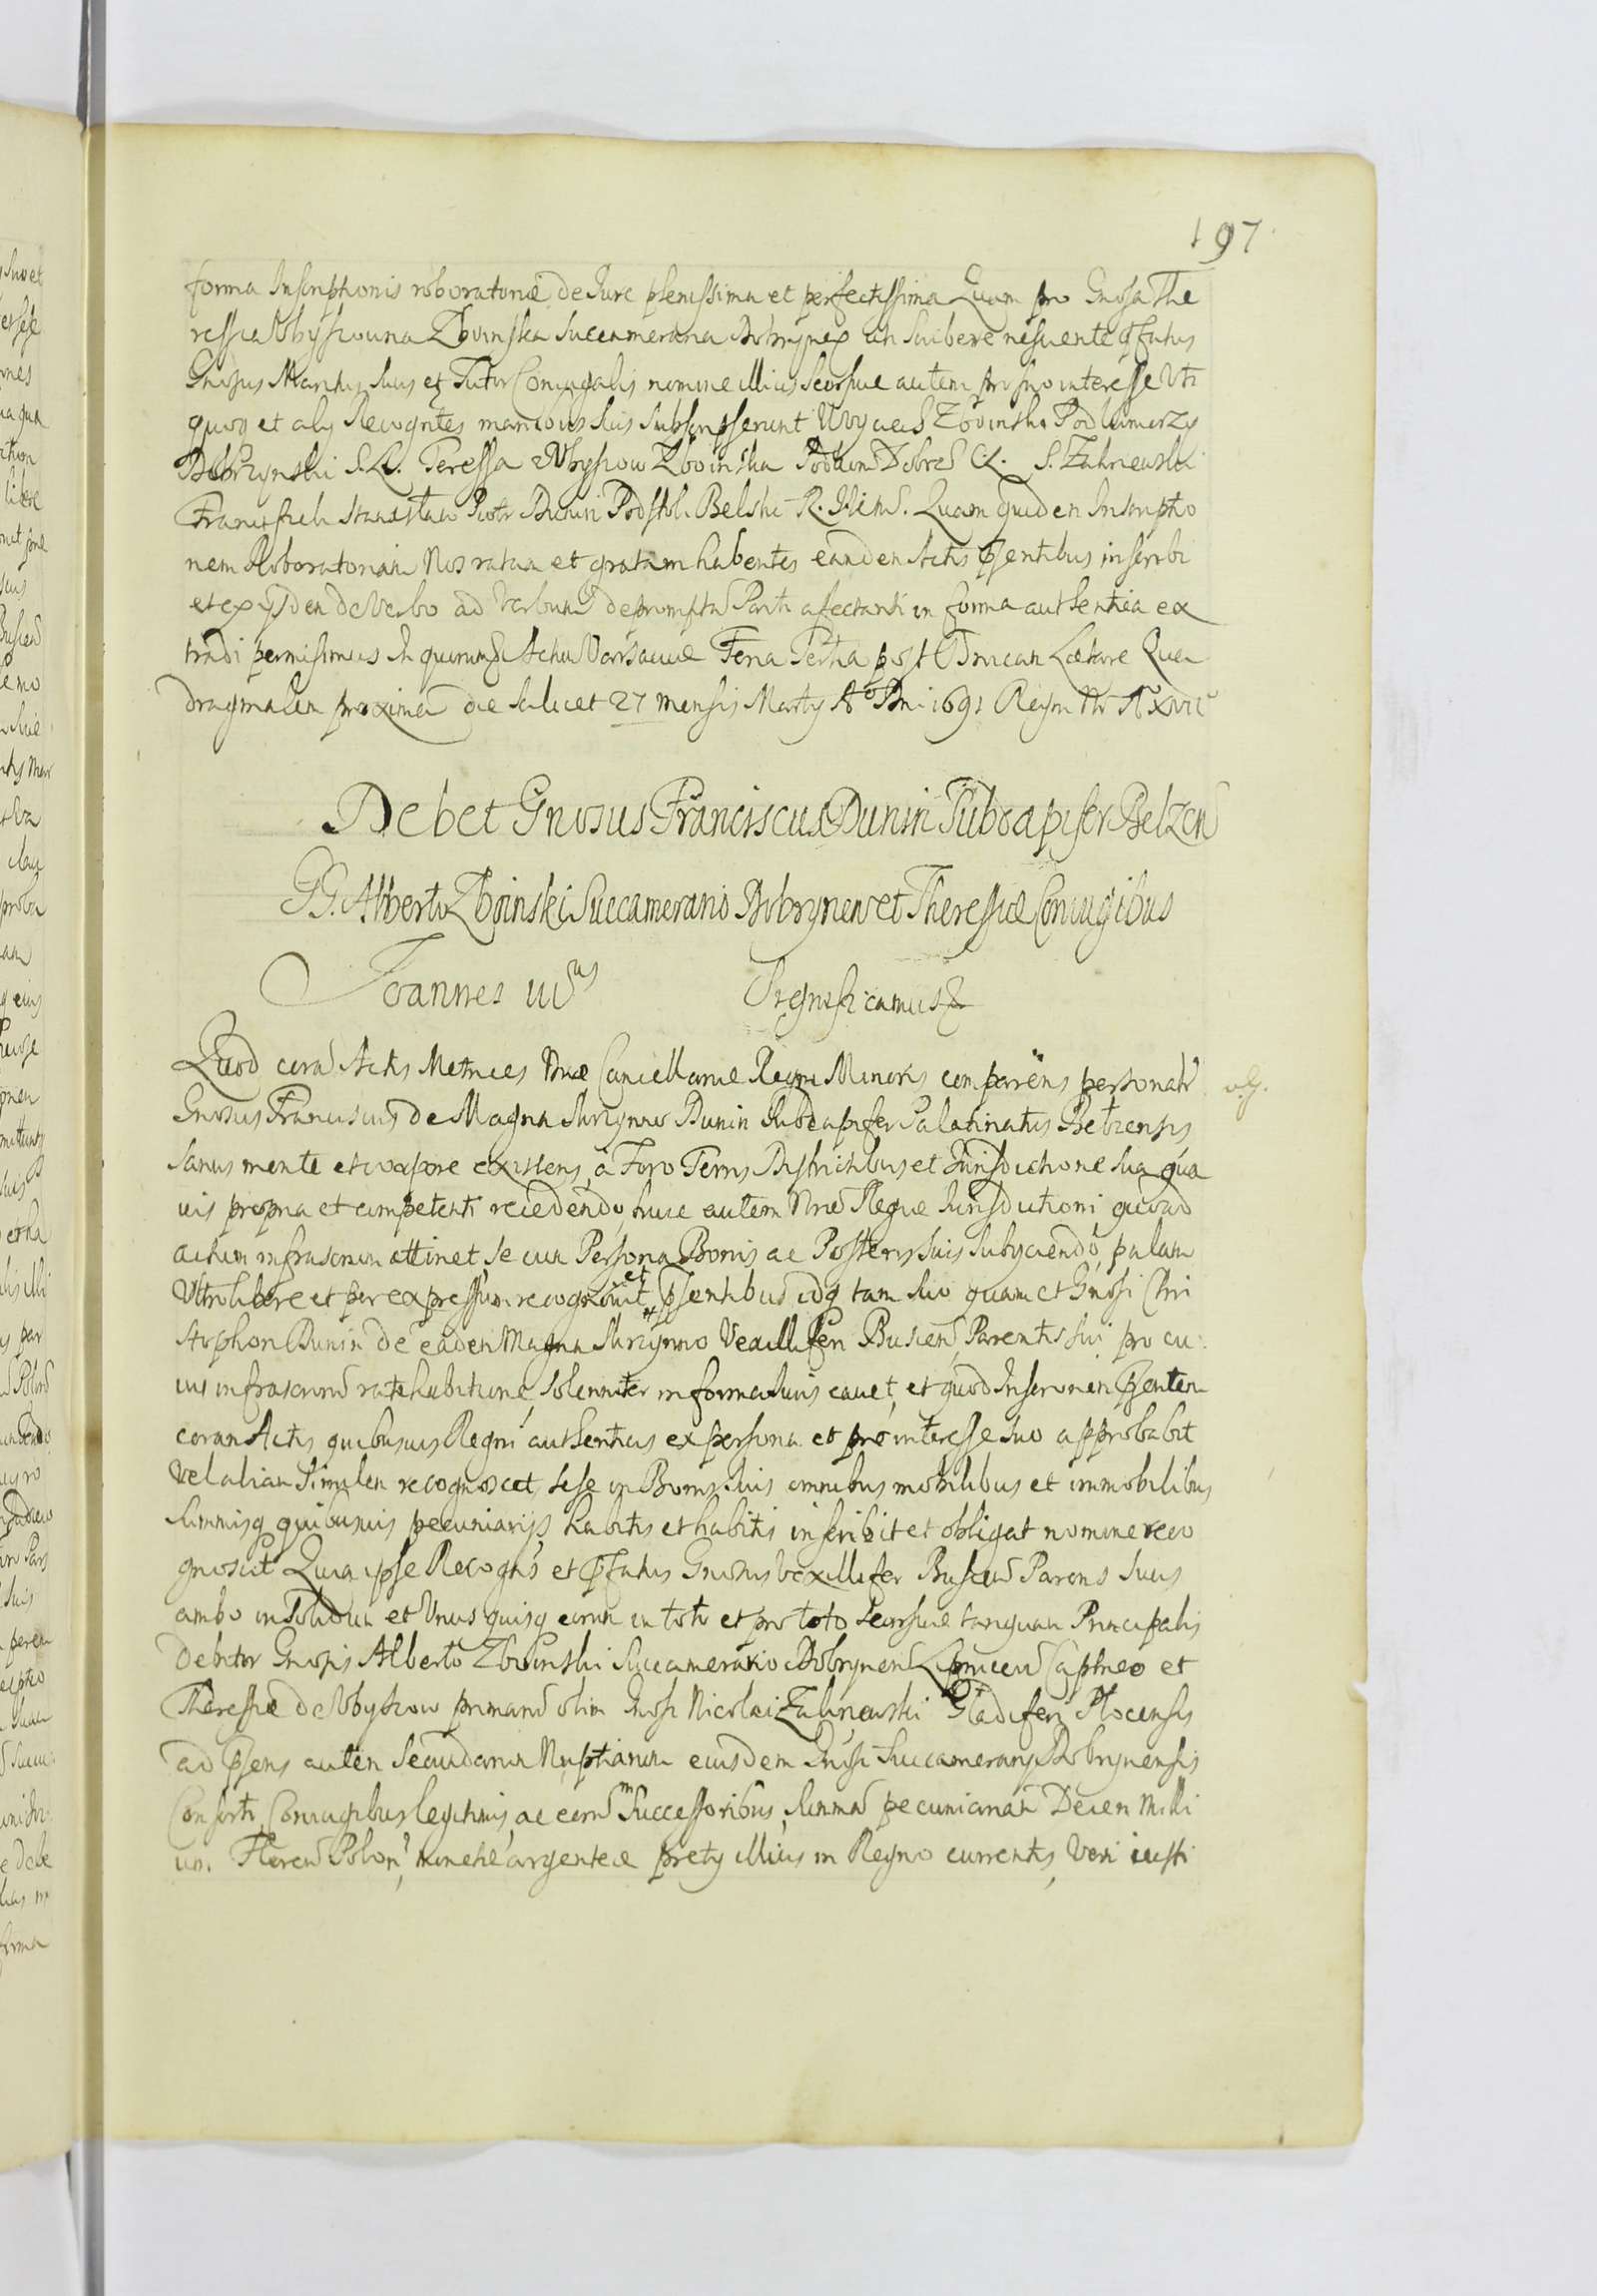 197
forma Inscriptionis roboratoriæ de Iure plenissima et perfectissima Quam pro Gnosa The
ressia Zboinska Succamerana scribere nesciente pfatus
Gnosus Maritus suus et Tutor Coniugalis nomine illius seorsive autem pro suo interesse Uti
quoq et alij Recogntes manibus suis subscripserunt Woyciech Zboinski Podkomorzy
Dobrzynski S.L. Teressa Zboinska S. Zalinewski
Franciszek Stanisław Piotr Dunin Podstoli Belski Quam quidem Inscriptio
nem Roboratoriam Nos ratam et gratam habentes eandem Actis psentibus inscribi
et ex ijsdem de Verbo ad Verbum depromptã Parti afectanti in forma authentica ex
tradi permisimus In quorum Actu Varsaviæ Feria Tertia post Dnicam Lætare Qua
dragmalem proxima die scilicet 27 mensis Martij Aº Dni 1691 Regni Nri A XVII
Debet Gnosus Franciscus Dunin Subdapifer Belzen
GG. Alberto Zboinski Succamerario Dobrynen et Theressiæ Coniugibus
Joannes IIIus Significamus &
Quod corã Actis Metrices Nræ Cancellariæ Regni Minoris comparens personalr
Gnosus Franciscus de Magna Skrzynno Dunin Subdapifer Palatinatus Belzensis
sanus mente et corpore existens, à Foro Terris Districtibus et Jurisdictione sua qua
vis propria et competenti recedendo, huic autem Nræ Regiæ Jurisdictioni quoad
actum infrascrum attinet, se cum Persona Bonis ac Posteris suis subijciendo, palam
Ultro libere et per expressum recognovit et psentibus idq tam suo quam et Gnosi Chri
stophori Dunin de eadem Magna Skrzynno Vexilliferi Buscen Parentis sui pro cu:
ius infrascrorũ ratihabitione, solenniter in forma Iuris cavet, et quod Inscronem Psentem
coram Actis quibusvis Regni authenticis ex persona et pro interesse suo approbabit
Vel aliam similem recognoscet sese in Bonis suis omnibus mobilibus et immobilibus
summisq quibusvis pecuniarijs habitis et habitis inscribit et obligat nomine reco
gnoscit Quia ipse Recognś et pfatus Gnosus Vexillifer Buscen Parens suus
ambo in solidum et Unusquisq eorum in toto et pro toto seorsive tanquam Principalis
Debitor Gnosis Alberto Zboinski Succamerario Dobrynen Captneo et
Theressiæ de primarũ olim Gnosi Nicolai Zalinewski Gladiferi Plocensis
ad psens autem secundarum Nuptiarum eiusdem Gnosi Succamerarij Dobrynensis
Consorti, Coniugibus legitimis, ac eorũm Successoribus, summã pecuniariã Decem Milli
um Floren Polon, monetæ argenteæ pretij illius in Regno currentis, Veri iusti